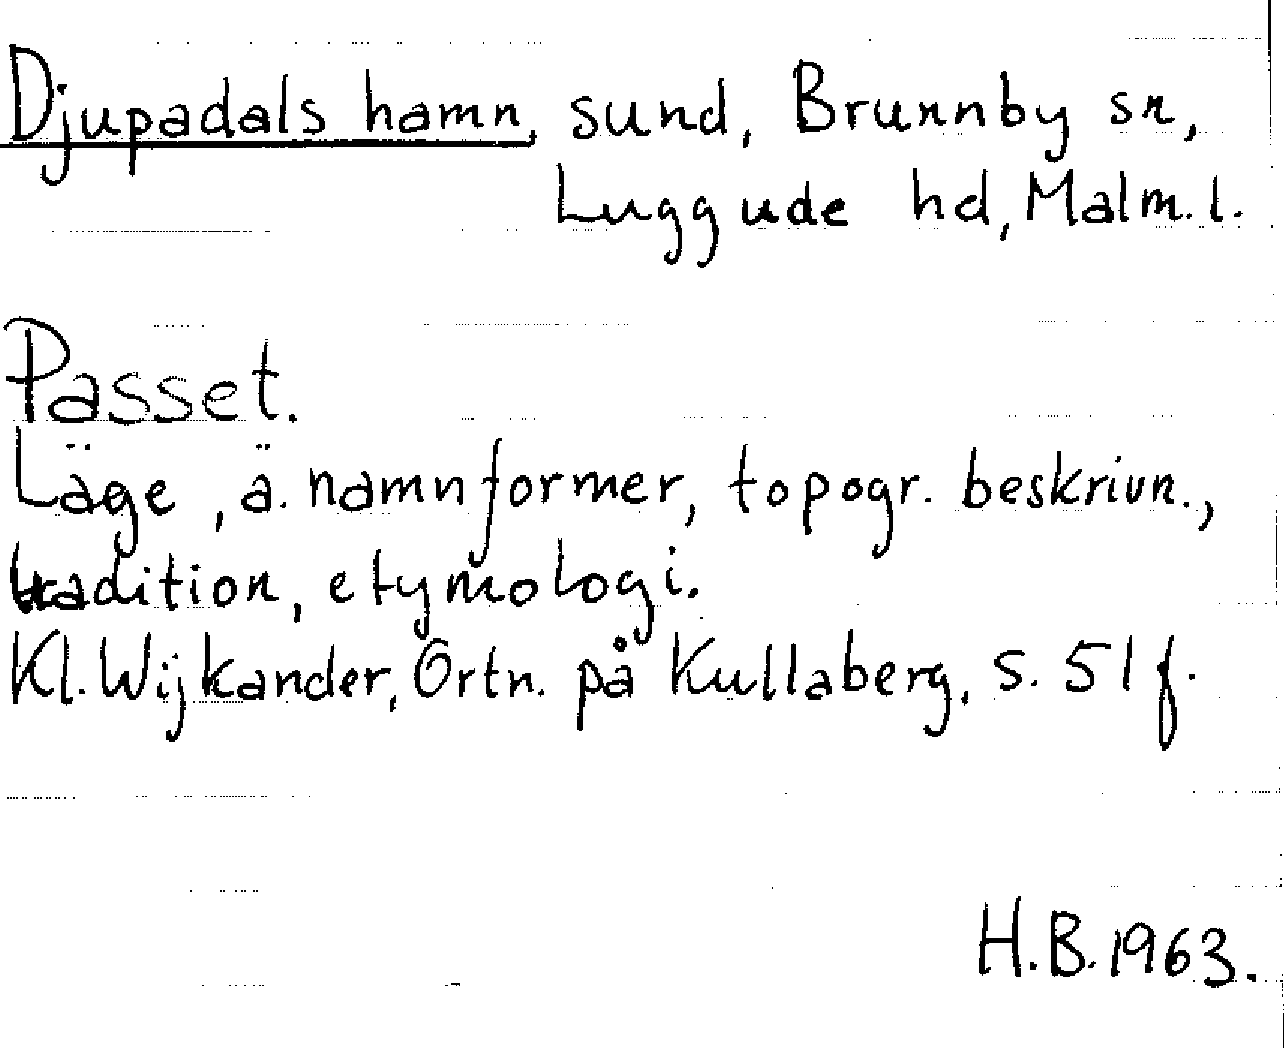 Djupadals hamn, sund, Brunnby sn,
Luggude hd, Malm. l.
Passet.
Läge, ä. namnformer, topogr. beskrivn.,
tradition, etymologi.
Kl. Wijkander, Ortn. på Kullaberg, s. 51 f.
H.B. 1963.